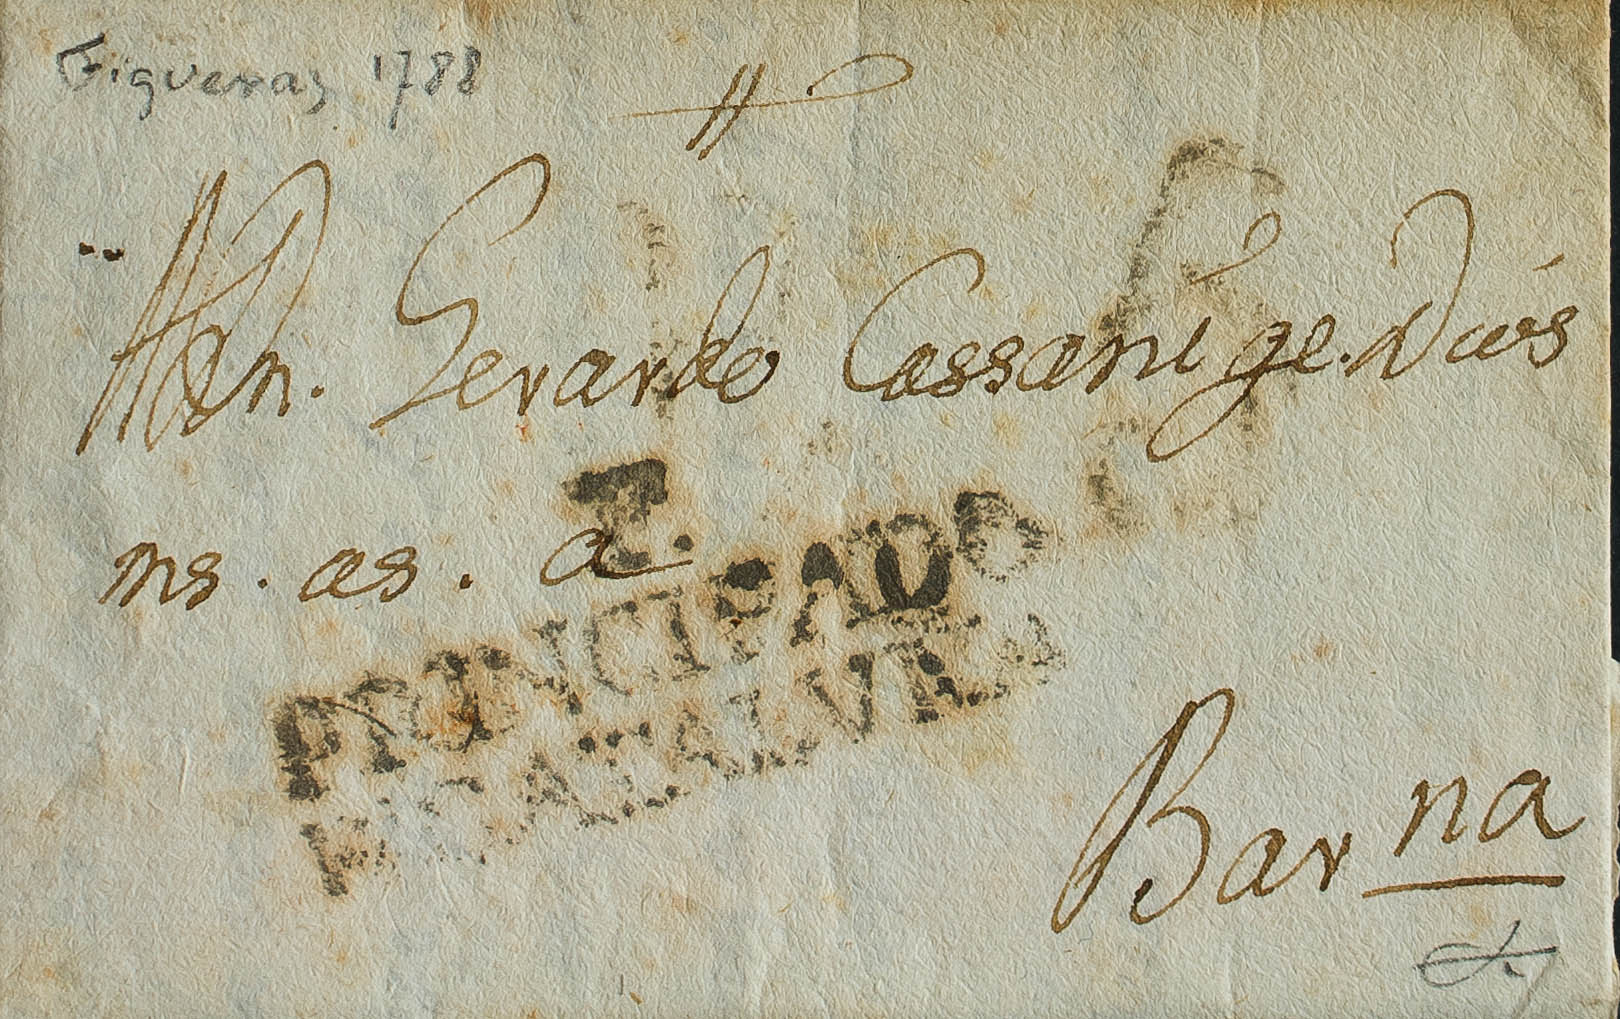 Figueras 1788
A Dn. Gerardo Cassani ge. Dios
ms. as. a
Z.
PRINCIPADO
D CATALVÑA
Barna